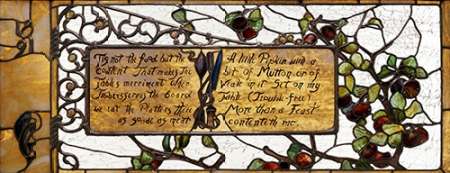 Tis not the food but the
content That makes the
table's merriment Wher
Trouble serves the Board
we eat the Platters there
as soone as meat
A little Pipkin with a
bit of Mutton or of
Veale in it Set on my
Table (Trouble-free)
More than a Feast
contenteth me.